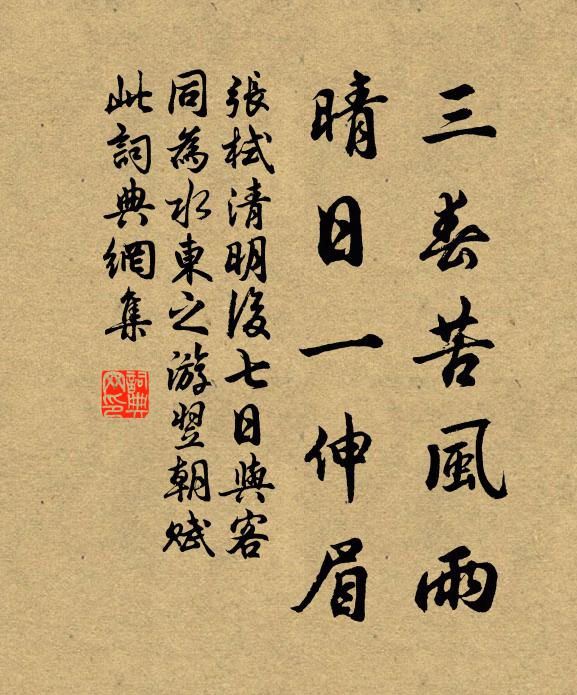 三春苦風雨
晴日一伸眉
張栻清明後七日與客
同為水東之游翌朝賦
此詞典網集
詞典網印